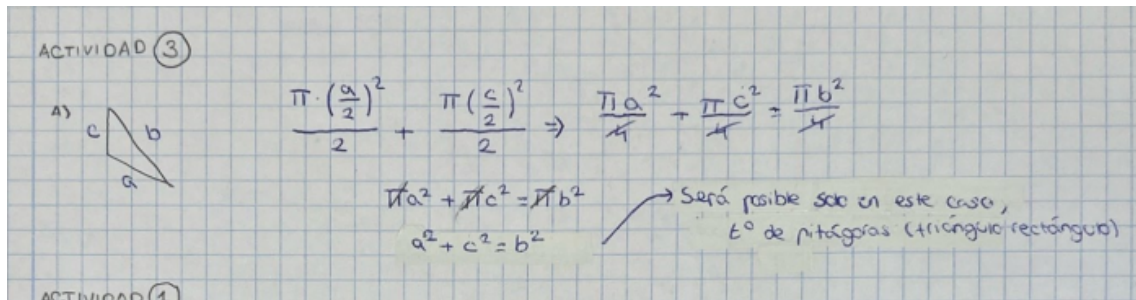 ACTIVIDAD 3
A)
c b
a
π·(a/2)²/2 + π(c/2)²/2 ⇒ πa²/4 + πc²/4 = πb²/4
πa² + πc² = πb²
a² + c² = b²
Será posible solo en este caso,
tº de pitágoras (triángulo rectángulo)
ACTIVIDAD 1